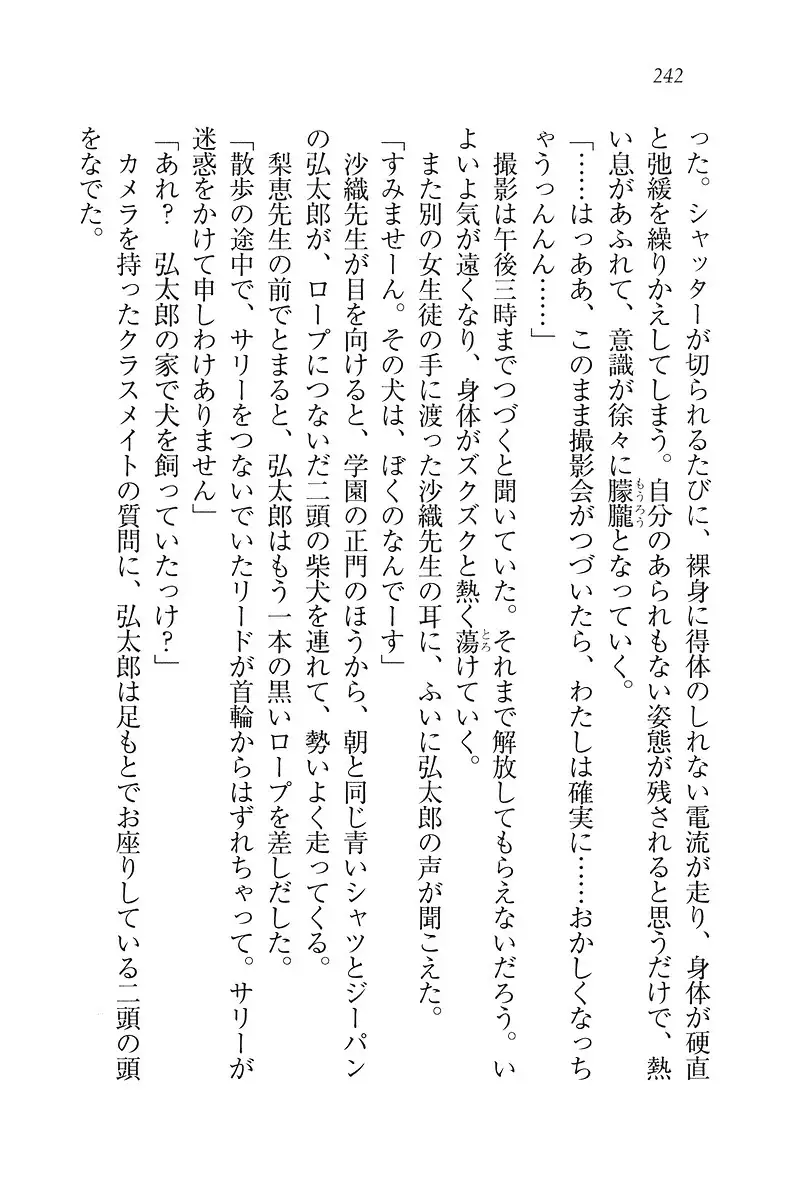 242
った。シャッターが切られるたびに、裸身に得体のしれない電流が走り、身体が硬直
と弛緩を繰りかえしてしまう。自分のあられもない姿態が残されると思うだけで、熱
い息があふれて、意識が徐々に朦朧もうろうとなっていく。
「……はっああ、このまま撮影会がつづいたら、わたしは確実に……おかしくなっち
ゃうっんんん……」
撮影は午後三時までつづくと聞いていた。それまで解放してもらえないだろう。い
よいよ気が遠くなり、身体がズクズクと熱く蕩とろけていく。
また別の女生徒の手に渡った沙織先生の耳に、ふいに弘太郎の声が聞こえた。
「すみませーん。その犬は、ぼくのなんでーす」
沙織先生が目を向けると、学園の正門のほうから、朝と同じ青いシャツとジーパン
の弘太郎が、ロープにつないだ二頭の柴犬を連れて、勢いよく走ってくる。
梨恵先生の前でとまると、弘太郎はもう一本の黒いロープを差しだした。
「散歩の途中で、サリーをつないでいたリードが首輪からはずれちゃって。サリーが
迷惑をかけて申しわけありません」
「あれ？　弘太郎の家で犬を飼っていたっけ？」
カメラを持ったクラスメイトの質問に、弘太郎は足もとでお座りしている二頭の頭
をなでた。